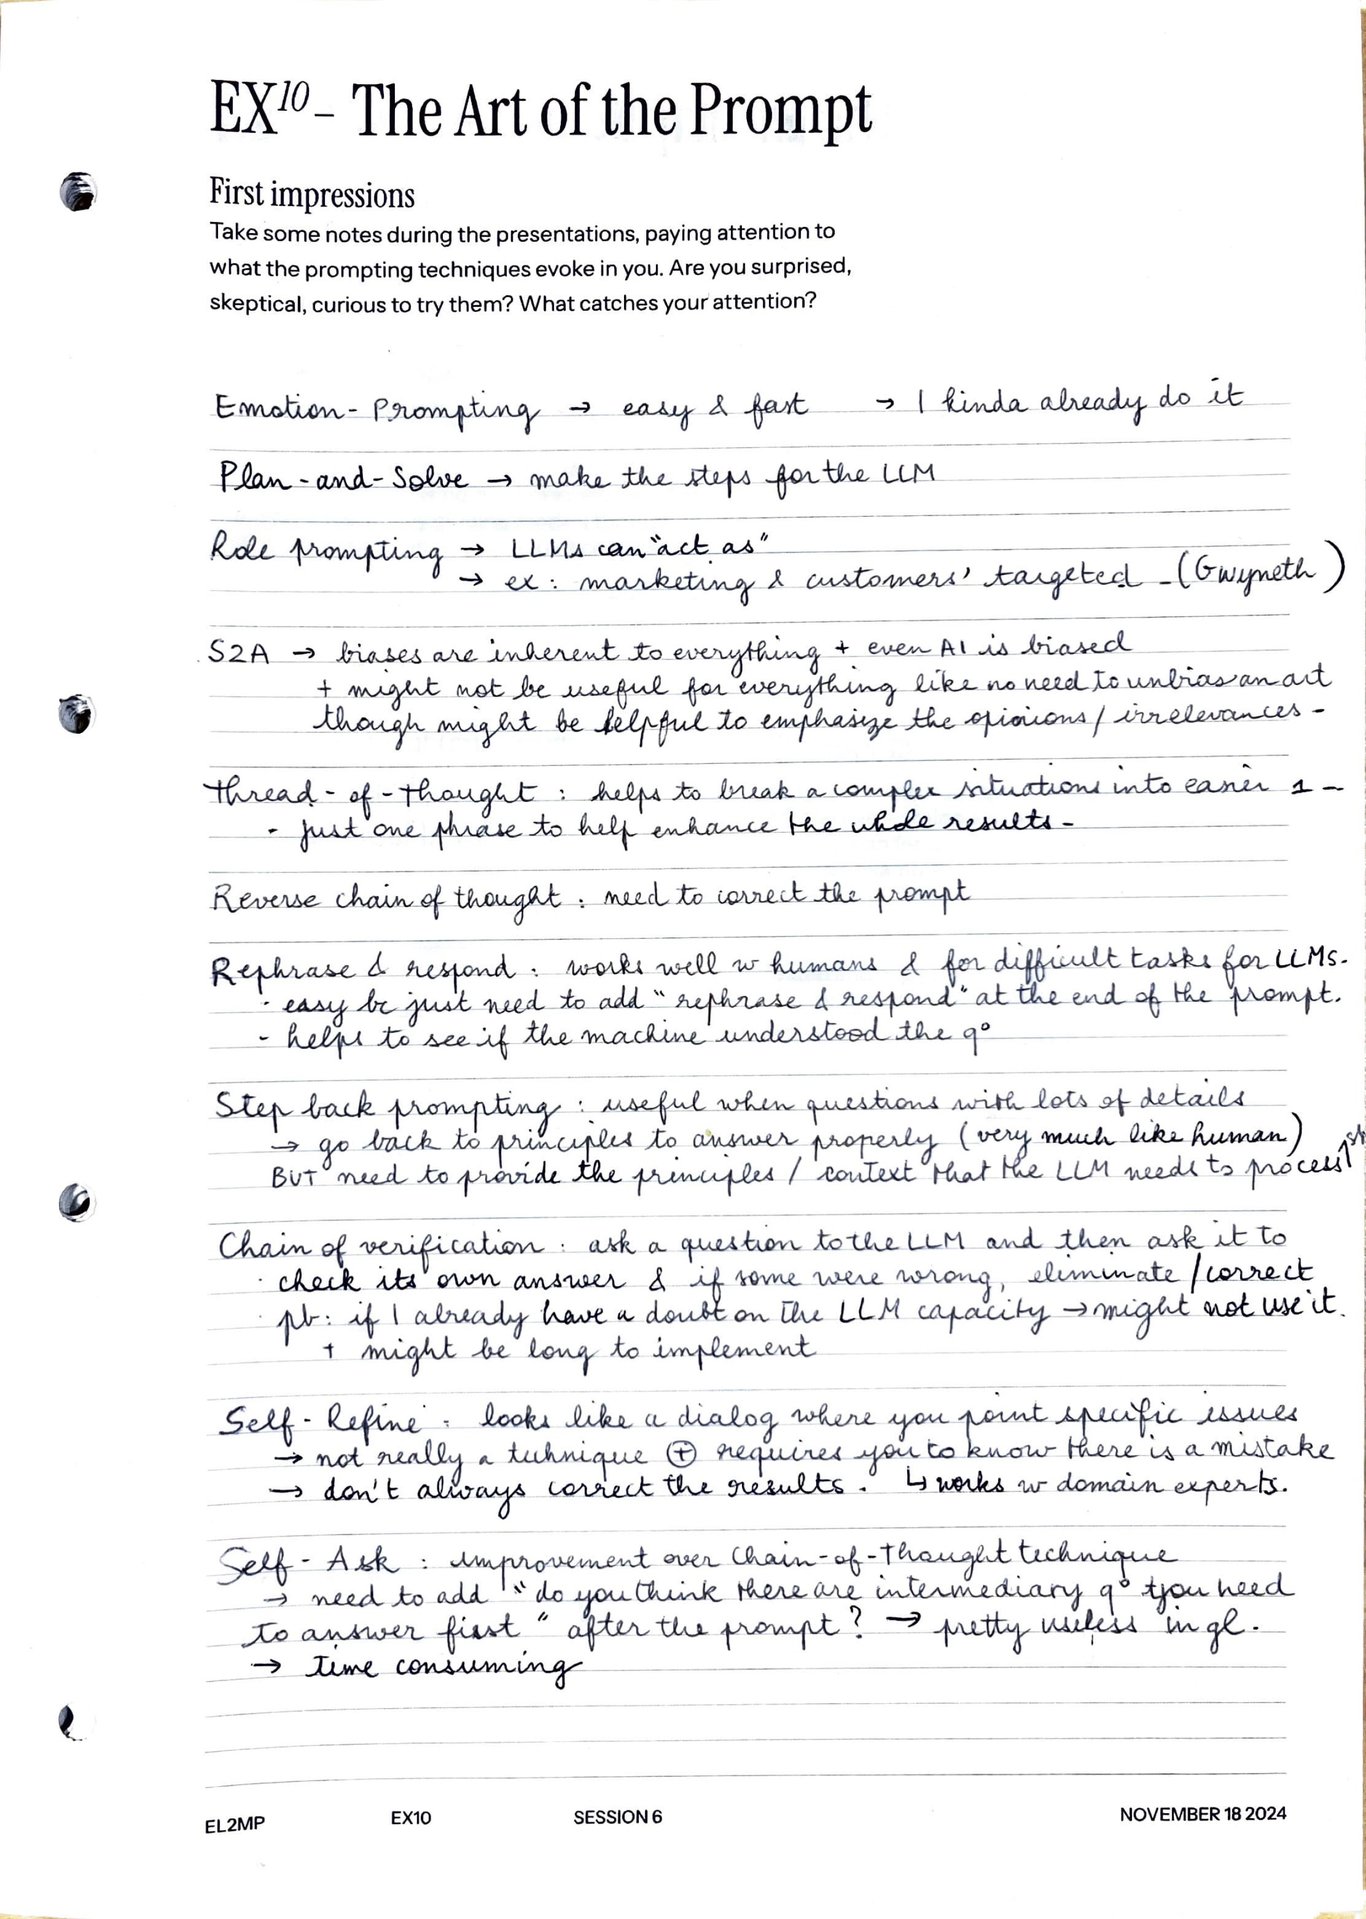 EX10 – The Art of the Prompt
First impressions
Take some notes during the presentations, paying attention to
what the prompting techniques evoke in you. Are you surprised,
skeptical, curious to try them? What catches your attention?
Emotion-Prompting → easy & fast → I kinda already do it
Plan-and-Solve → make the steps for the LLM
Role prompting → LLMs can "act as"
→ ex: marketing & customers' targeted - (Gwyneth)
S2A → biases are inherent to everything + even AI is biased
+ might not be useful for everything like no need to unbias an art
though might be helpful to emphasize the opinions / irrelevances -
Thread-of-thought : helps to break a complex situations into easier 1 -
- just one phrase to help enhance the whole results -
Reverse chain of thought : need to correct the prompt
Rephrase & respond : works well w humans & for difficult tasks for LLMs.
· easy bc just need to add "rephrase & respond" at the end of the prompt.
- helps to see if the machine understood the q°
Step back prompting : useful when questions with lots of details
→ go back to principles to answer properly (very much like human)
BUT need to provide the principles / context that the LLM needs to process 1st
Chain of verification : ask a question to the LLM and then ask it to
· check its own answer & if some were wrong, eliminate / correct
· pb: if I already have a doubt on the LLM capacity → might not use it.
+ might be long to implement
Self-Refine : looks like a dialog where you point specific issues
→ not really a technique ⊕ requires you to know there is a mistake
→ don't always correct the results. ↳ works w domain experts.
Self-Ask : improvement over Chain-of-Thought technique
→ need to add "do you think there are intermediary q° you need
to answer first" after the prompt ? → pretty useless in gl.
→ time consuming
EL2MP EX10 SESSION 6 NOVEMBER 18 2024